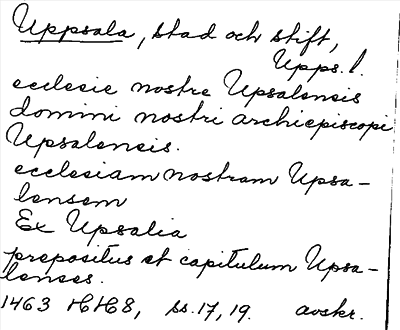 Uppsala, stad och stift,
Upps. l.
ecclesie nostre Upsalensis
domini nostri archiepiscopi
Upsalensis.
ecclesiam nostram Upsa-
lensem
Ex Upsalia
prepositus et capitulum Upsa-
lenses.
1463 HH8, ss. 17, 19. avskr.